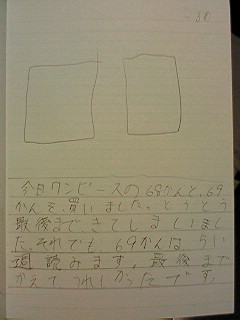 今日ワンピースの68かんと、69
かんを、買いました。とうとう
最後まできてしましいまし
た。それでも、69かんは、らい
週読みます。最後まで
かえてうれしかったです。